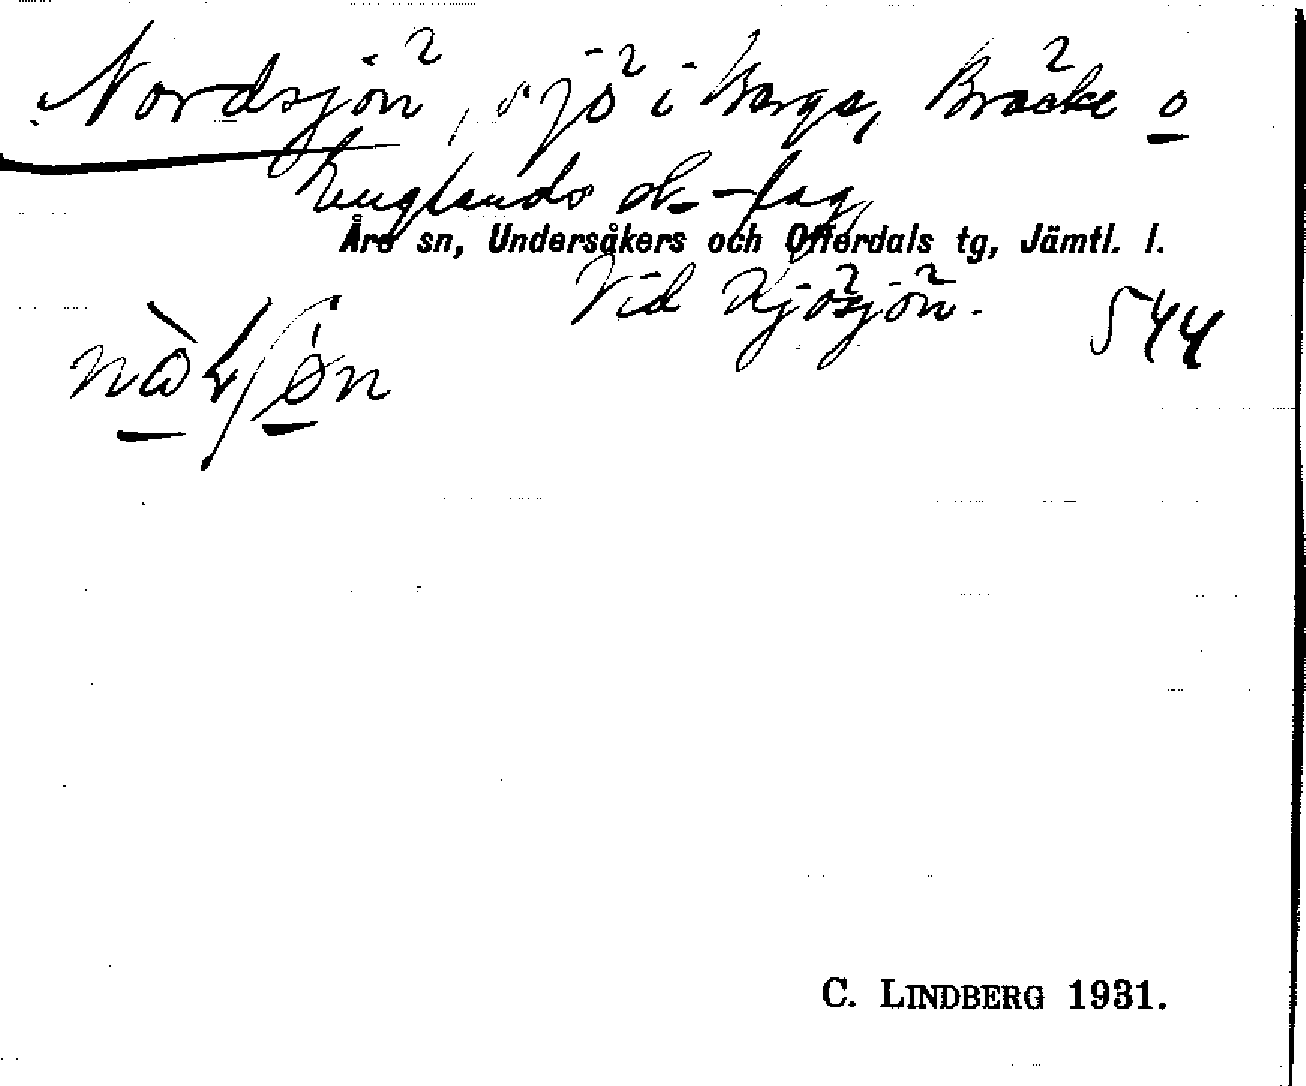 Nordsjön, sjö i Berge, Bräcke o
Englands sk-lag,
Åre sn, Undersåkers och Offerdals tg, Jämtl. l.
Vid Kjösjön.
544
C. LINDBERG 1931.